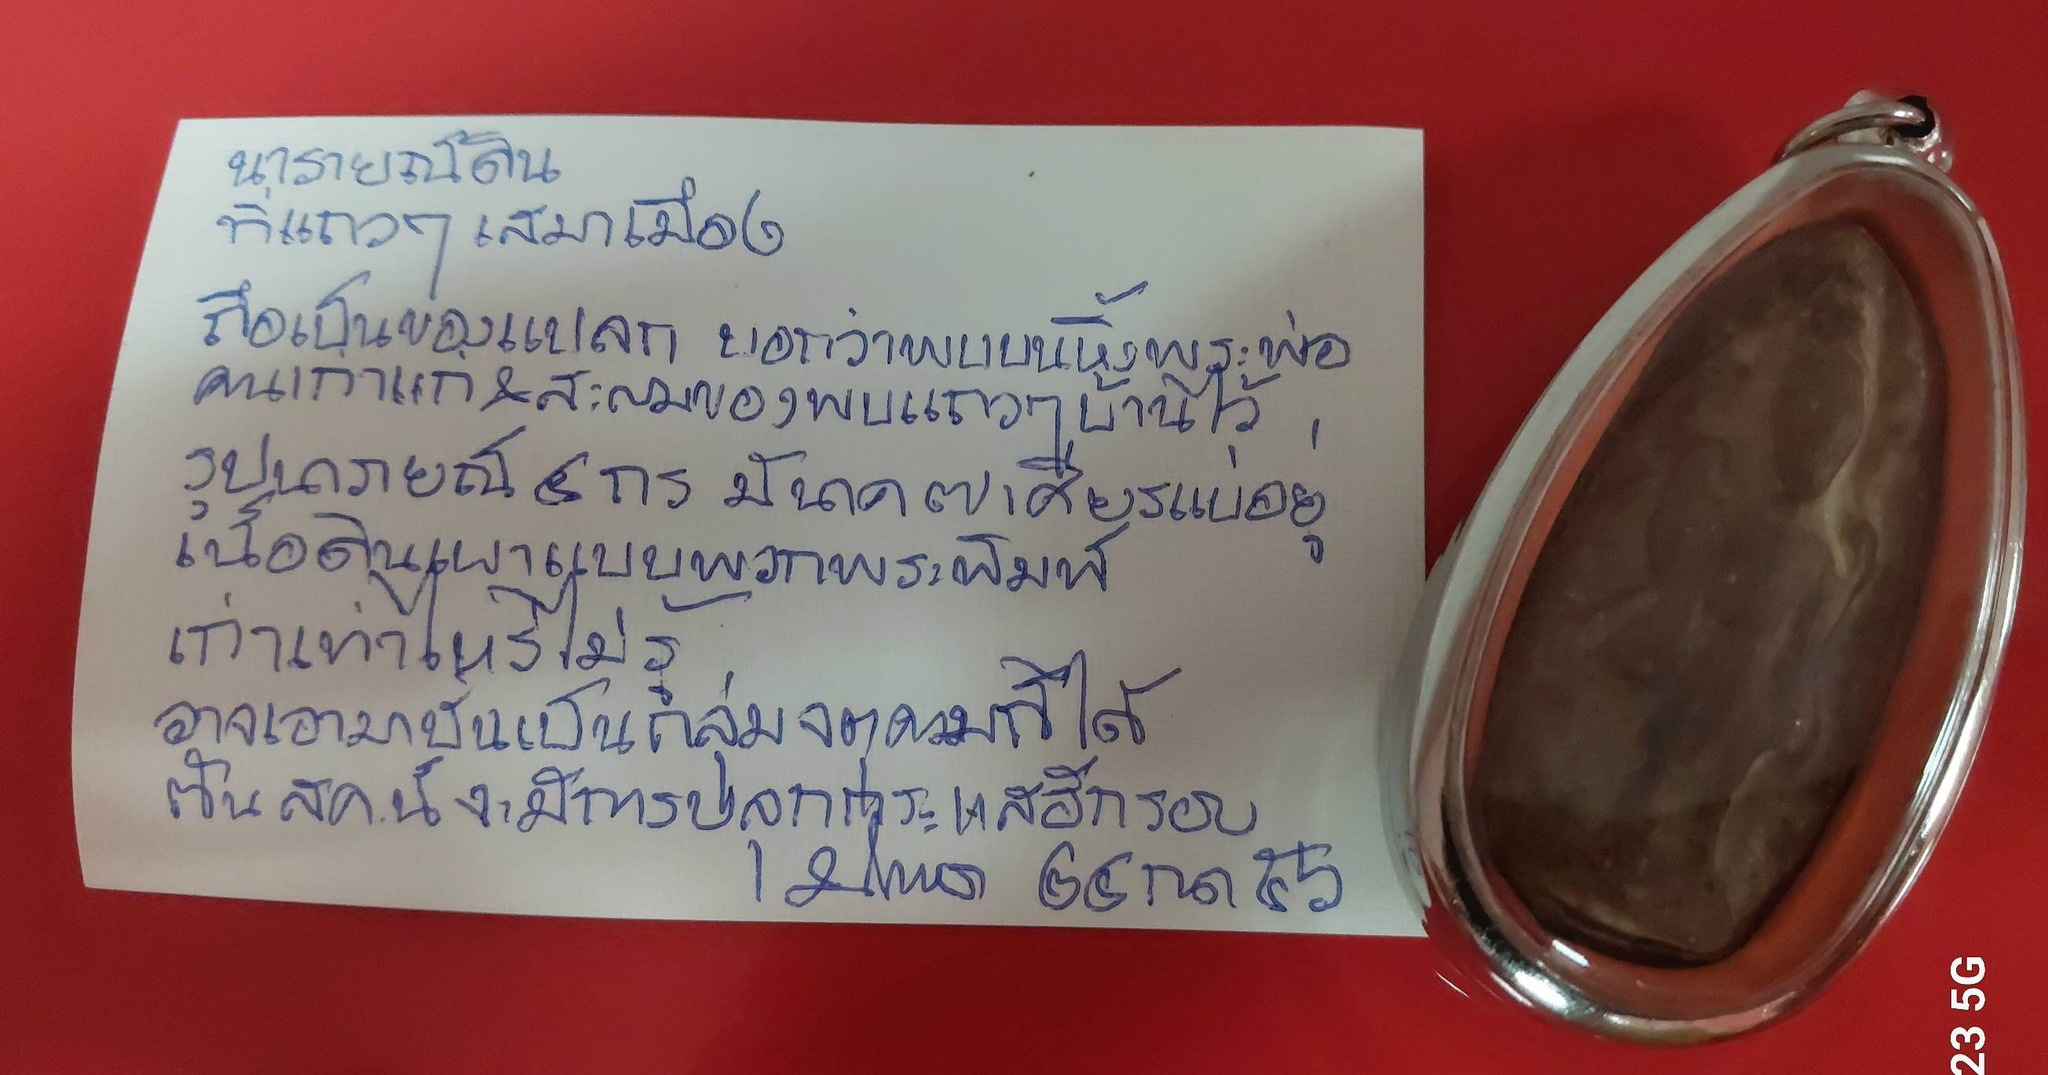 นารายณ์ดิน
ที่แถวๆ เสมาเมือง
ถือเป็นของแปลก บอกว่าพบบนหิ้งพระพ่อ
คนเก่าแก่ & สะสมของพบแถวๆ บ้านไว้
รูปนารายณ์ ๔ กร มีนาค ๗ เศียรแผ่อยู่
เนื้อดินเผาแบบพวกพระพิมพ์
เก่าเท่าไหร่ไม่รู้
อาจเอามาปั่นเป็นกลุ่มจตุคามก็ได้
ต้น สค.นี้ จะมีการปลุกกระแสอีกรอบ
๒๔ กค
23 5G